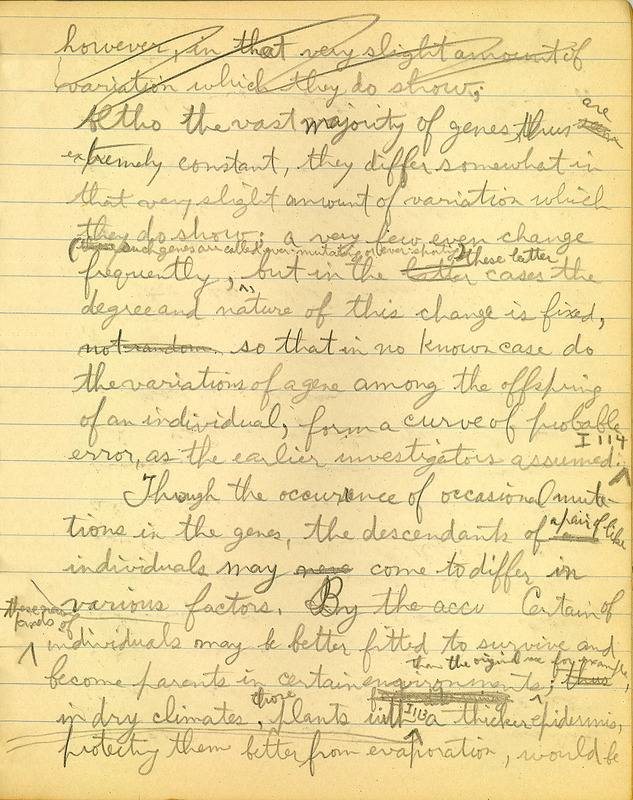 however, in that very slight amount of
variation which they do show;
Altho the vast majority of genes, thus are
extremely constant, they differ somewhat in
that very slight amount of variation which
they do show: a very few even change
(such genes are called ever-mutating or ever-sporting) these latter
frequently, but in the latter cases the
degree and nature of this change is fixed,
not random, so that in no known case do
the variations of a gene among the offspring
of an individual, form a curve of probable
I 114
error, as the earlier investigators assumed.
Though the occurrence of occasional muta-
tions in the genes, the descendants of a pair of like
individuals may come to differ in
various factors. By the accu Certain of
these new
kinds of
individuals may be better fitted to survive and
than the original one for example,
become parents in certain environments; thus,
those
in dry climates, plants with I 113 a thicker epidermis,
protecting them better from evaporation, would be